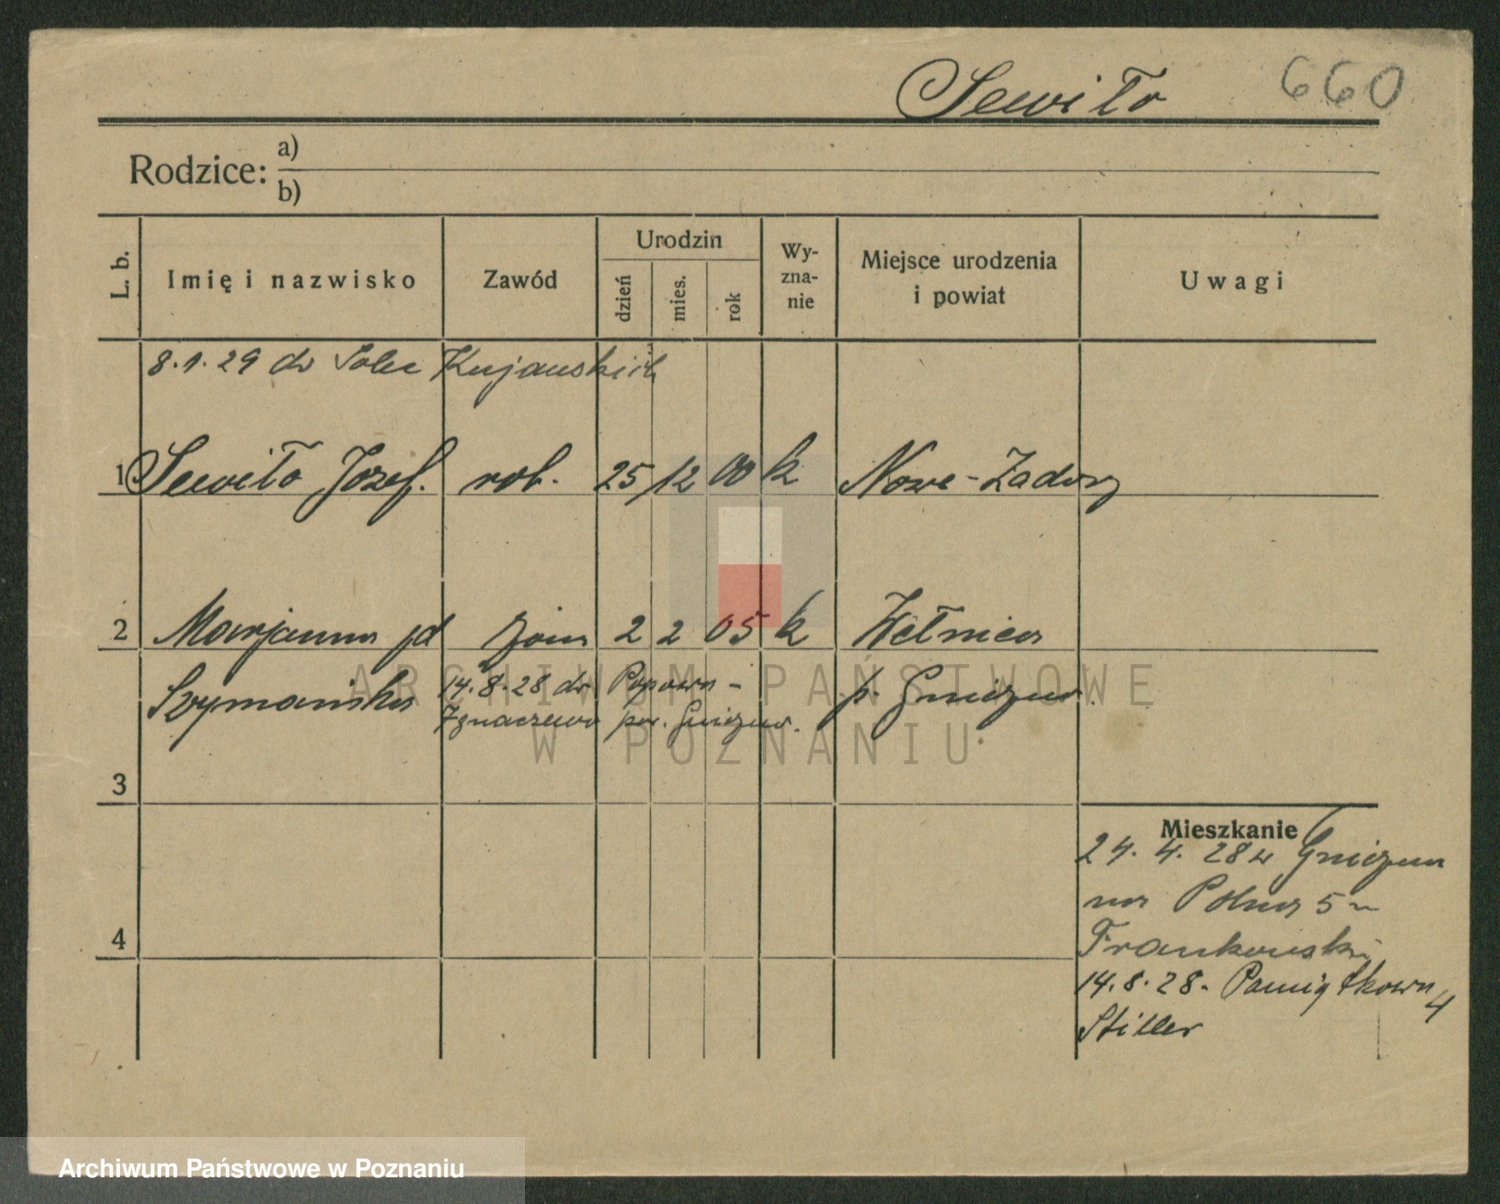 Sewiło 660
Rodzice: a)
b)
L. b. Imię i nazwisko Zawód Urodzin dzień mies. rok Wy-zna-nie Miejsce urodzenia i powiat Uwagi
8.1.29 do Solec Kujawskich
1 Sewiło Józef. rob. 25/12 00 k Nowe-
2 Marjanna żona 2 2 05 k Wełnica
Szymańska 14.8.28 do Popowa- p. Gniezno.
Ignacewo pow. Gniezno.
3
Mieszkanie
24. 4. 28 z Gniezna
na Polna 5
4
Frankowski
14.8.28. Pamiątkowa 4
Stiller
ARCHIWUM PAŃSTWOWE
W POZNANIU
Archiwum Państwowe w Poznaniu